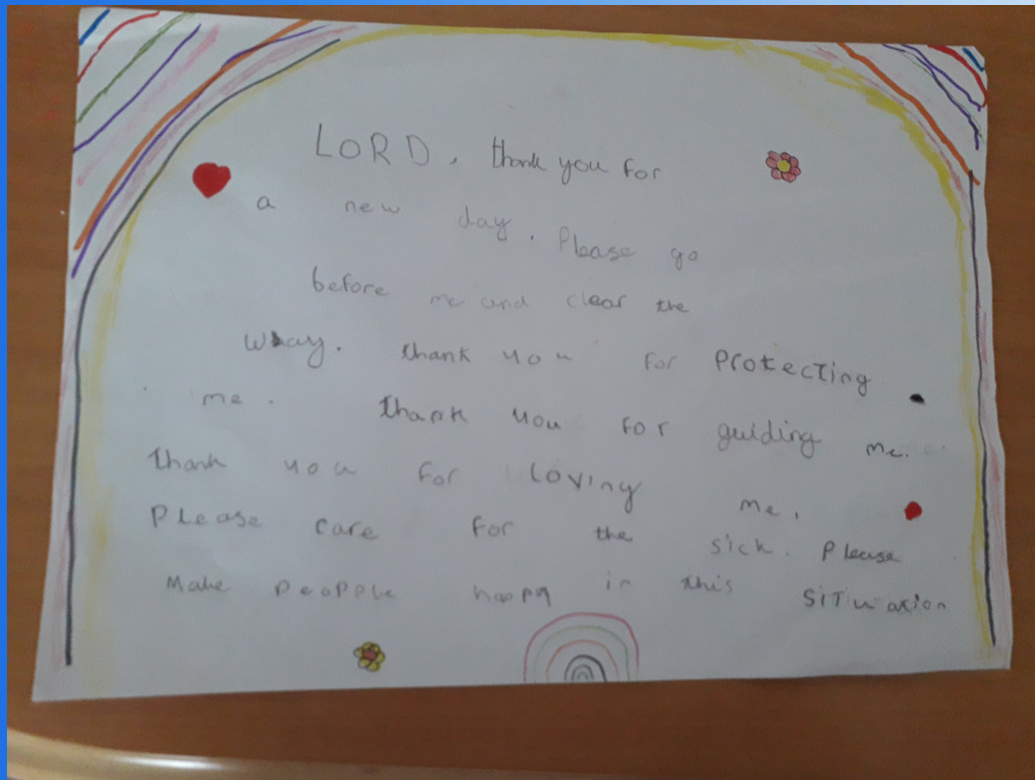 LORD, thank you for
a new day. Please go
before me and clear the
Whay. thank you for Protecting
me. thank you for guiding me.
thank you for Loving me.
PLease care for the sick. Please
Make peopple happy in this SITuation